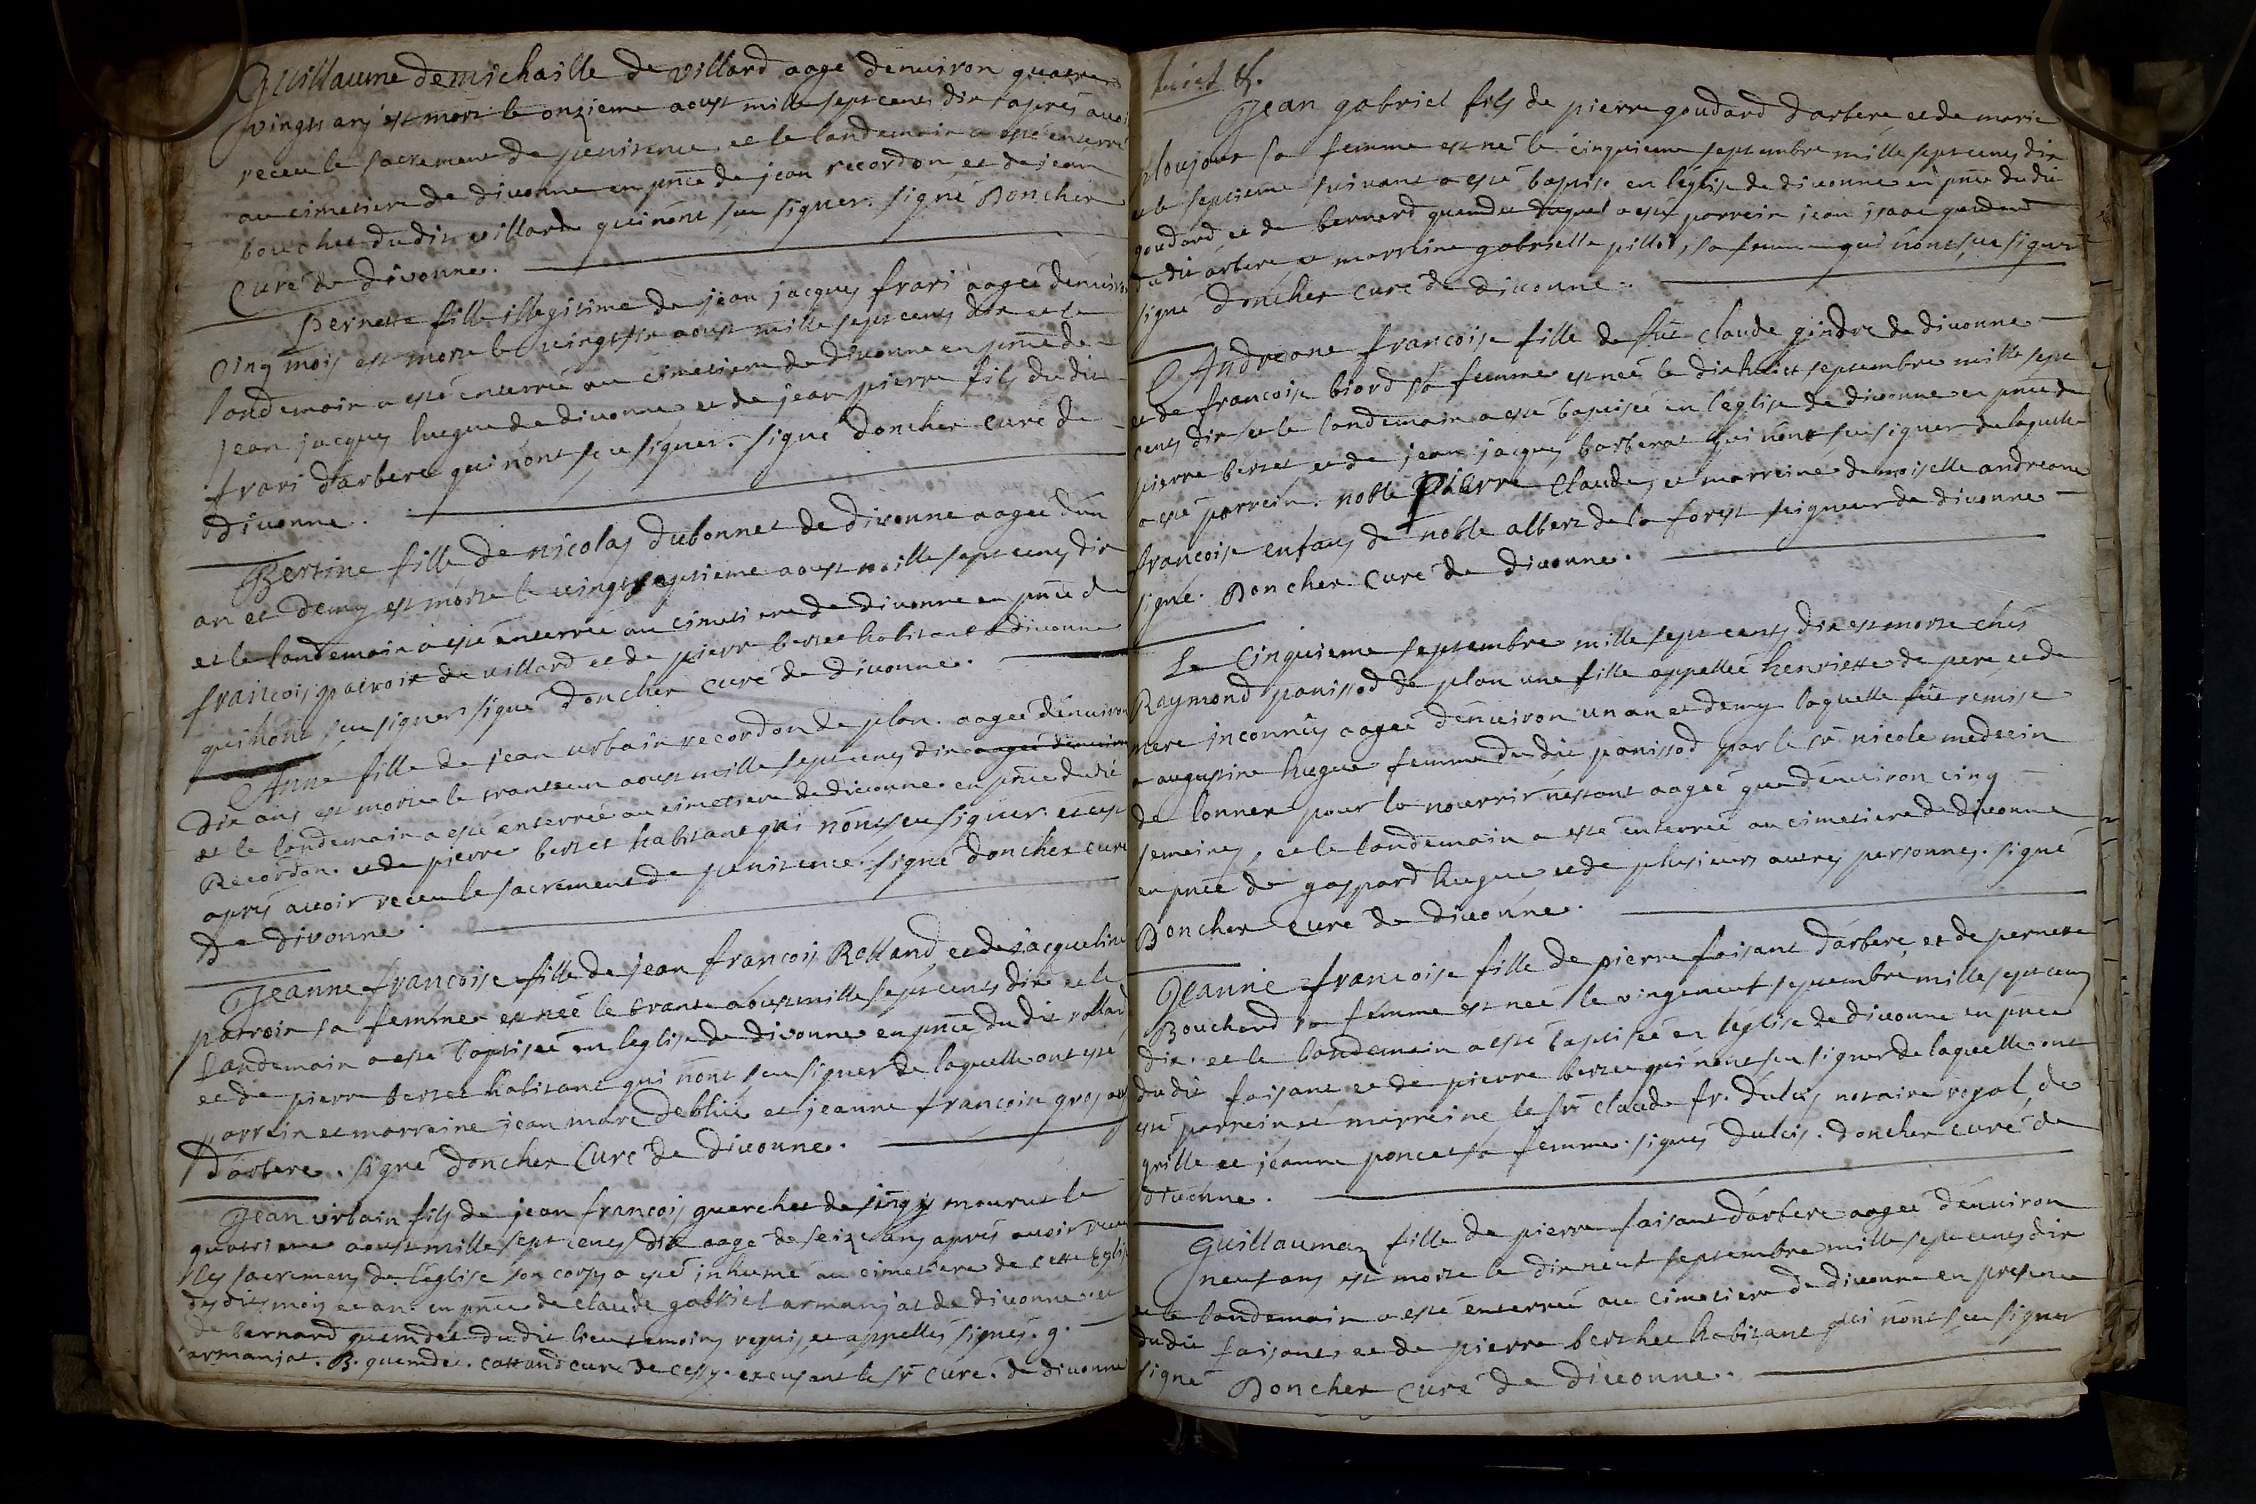 Guillaume demichaille de villard aagé denuiron quatre
vingts ans est mort le onzieme aoust mille septcents dix apres auoir
receu le sacrement de penitence, et le landemain a esté enterré
au cimetiere de diuonne en pnce de jean recordon et de jean
bouchet dudit villard qui nont sceu signer. signé Doncher
Curé de diuonne.
Pernette fille illegitime de jean jacques frari aageé denuiron
cinq mois est morte le vingtsix aoust mille septcents dix et le
landemain a esté enterrée au cimetiere de diuonne en pnce de
jean jacques hugue de diuonne et de jean pierre fils du dit
frari darbere qui nont sceu signer. signé doncher curé de
diuonne.
Bertine fille de nicolas dubonnet de diuonne aagée d'un
an et demy est morte le vingtseptieme aoust mille septcents dix
et le landemain a esté enterrée au cimetiere de diuonne en pnce de
francois parroix de villard et de pierre bertet habitant a diuonne
qui nont sceu signer signé doncher curé de diuonne.
Anne fille de jean urbain recordon de plan. aageé denuiron
dix ans est morte le trantun aoust mille septcents dix aageé denuiron
et le landemain a esté enterrée au cimetiere de diuonne. en pnce dudit
Recordon. et de pierre bertet habitant qui nont sceu signer. et cest
apres auoir receu le sacrement de penitence. signé doncher curé
de diuonne.
Jeanne francoise fille de jean francois Rolland, et de jacqueline
parroix sa femme est née le trante aoust mille septcents dix et le
landemain a esté baptisée en leglise de diuonne en pnce du dit rolland
et de pierre bertet habitant qui nont sceu signer de laquelle ont esté
parrain et marraine jean marc deblüe et jeanne francoise grosjean
d'arbere. signé doncher Curé de diuonne.
Jean urbain fils de jean francois guerchet de singy mourut le
quatrieme aoust mille sept cents dix aagé de seize ans apres auoir receu
les sacrements de l'eglise son corps a esté inhumé au cimetiere de cette Eglise
desdits mois et an. en pnce de claude gabriel armanjat de diuonne et
de bernard quemdet du dit lieu temoins requis, et appellés signés. g.
armanjat. B. quemdet. Cattand curé de cessy. excusant le sr curé. de diuonne
Jean gabriel fils de pierre goudard d'arbere, et de marie
ploujoux sa femme est né le cinquieme septembre mille septcents dix
et le septieme suiuant a esté baptisé en l'eglise de diuonne en pnce du dit
goudard, et de bernard quemdet duquel a esté parrein jean isaac goudard
du dit arbere, et marreine gabrielle pillot, sa femme qui nont sceu signer
signé doncher curé de diuonne.
Andreane francoise fille de feu claude gindre de diuonne
et de francoise biord sa femme est neé le dixhuict septembre mille sept
cents dix et le landemain a esté baptisée en l'eglise de diuonne en pnce de
pierre bertet et de jean jacques barberat qui nont sceu signer de laquelle
a esté parrein. noble pierre Claude, et marreine demoiselle andreane
francoise enfans de noble albert de la forest seigneur de diuonne
signé. Doncher Curé de diuonne.
Le Cinquieme septembre mille septcents dix est morte chés
Raymond panissod de plan une fille appelleé henriette de pere, et de
mere inconnus aageé d'enuiron un an et demy laquelle fut remise
a augustine hugue femme du dit panissod par le sr nicole medecin
de lonner pour la nourrir n'estant aageé que denuiron cinq
semaines, et le landemain a esté enterreé au cimetiere de diuonne
en pnce de gaspard hugue et de plusieurs autres personnes. signé
Doncher Curé de diuonne.
Jeanne francoise fille de pierre faisant darbere, et de pernette
Bouchard sa femme est neé le vingtneuf septembre mille septcents
dix. et le landemain a esté baptisée en l'eglise de diuonne en pnce
du dit faisant et de pierre bertet qui nont sceu signer de laquelle ont
esté parrein et marreine le sr claude fr. dulcis notaire royal, de
grille et jeanne poncet sa femme. signés dulcis. doncher curé de
diuonne.
Guillaumaz fille de pierre faisant darbere aageé denuiron
neuf ans est morte le dixneuf septembre mille septcents dix
et le landemain a esté enterreé au cimetiere de diuonne en presence
du dit faisant, et de pierre berthet habitant qui nont sceu signer
signé Doncher curé de diuonne.